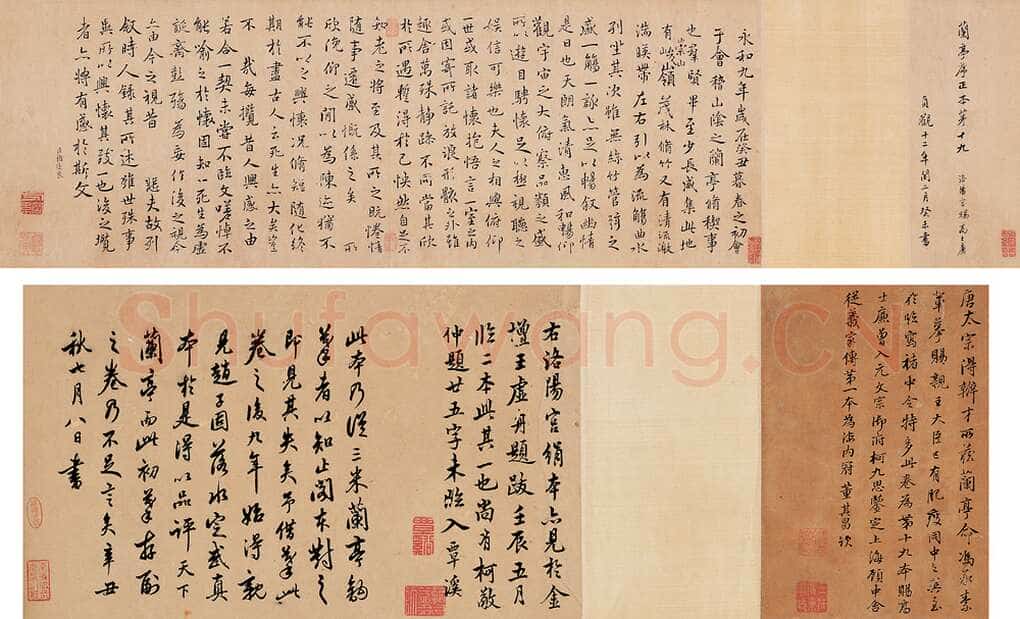 蘭亭序正本第十九 洛陽宮賜高士廉
貞觀十二年閏二月癸未書
永和九年歲在癸丑暮春之初會
于會稽山陰之蘭亭脩稧事
也羣賢畢至少長咸集此地
有崇山峻嶺茂林脩竹又有清流激
湍暎帶左右引以為流觴曲水
列坐其次雖無絲竹管弦之
盛一觴一詠亦足以暢敘幽情
是日也天朗氣清惠風和暢仰
觀宇宙之大俯察品類之盛
所以遊目騁懷足以極視聽之
娛信可樂也夫人之相與俯仰
一世或取諸懷抱悟言一室之內
或因寄所託放浪形骸之外雖
趣舍萬殊靜躁不同當其欣
於所遇暫得於己怏然自足不
知老之將至及其所之既惓情
隨事遷感慨係之矣 所
欣俛仰之間以為陳迹猶不
能不以之興懷況脩短隨化終
期於盡古人云死生亦大矣豈
不 哉每攬昔人興感之由
若合一契未嘗不臨文嗟悼不
能喻之於懷固知一死生為虛
誕齊彭殤為妄作後之視今
亦由今之視昔 悲夫故列
敘時人錄其所述雖世殊事
異所以興懷其致一也後之攬
者亦將有感於斯文
臣褚遂良
唐太宗得辨才所藏蘭亭命馮承素
輩摹賜親王大臣已有肥瘦同中之異至
於臨寫褚中令特多此卷為第十九本賜高
士廉曾入元文宗御府柯九思鑒定上海顧中舍
從義家傳第一本為海內冠董其昌跋
右洛陽宮絹本亦見於金
壇王虛舟題跋壬辰五月
臨二本此其一也尚有柯敬
仲題廿五字未臨入 覃溪
此本乃從三米蘭亭鉤
摹者以知止閣本對之
即見其失矣予借摹此
卷之後九年始得親
見趙子固落水定武真
本於是得以品評天下
蘭亭而此初摹存副
之卷乃不足言矣辛丑
秋七月八日書
Shufawang.c